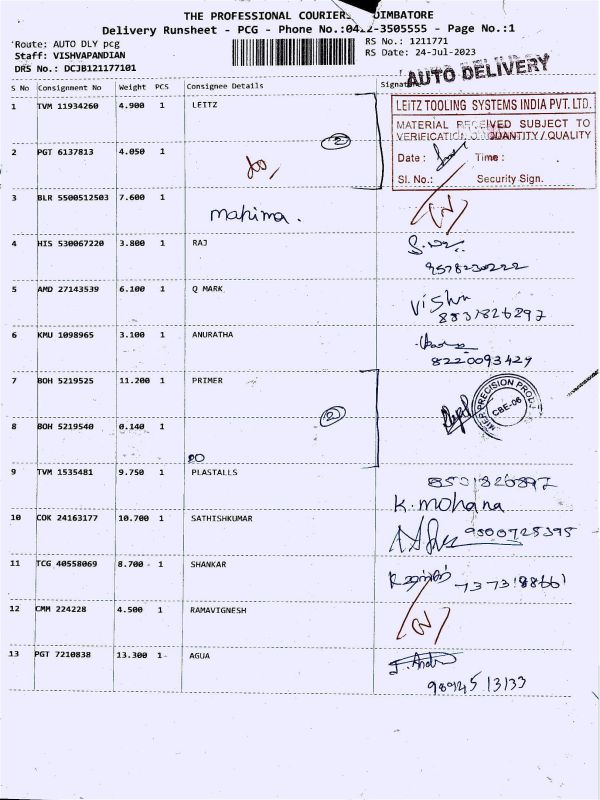 THE PROFESSIONAL COURIERS OIMBATORE
Delivery Runsheet - PCG - Phone No.:0422-3505555 - Page No.:1
Route: AUTO DLY pcg
RS No.: 1211771
Staff: VISHVAPANDIAN
RS Date: 24-Jul-2023
DRS No.: DCJB121177101
AUTO DELIVERY
S No Consignment No Weight PCS Consignee Details Signature
1 TVM 11934260 4.900 1 LEITZ
LEITZ TOOLING SYSTEMS INDIA PVT. LTD.
MATERIAL RECEIVED SUBJECT TO
VERIFICATION QUANTITY / QUALITY
Date : Time :
Sl. No.: Security Sign.
2
2 PGT 6137813 4.050 1
DO
3 BLR 5500512503 7.600 1
Mahima.
4 HIS 530067220 3.800 1 RAJ
9578230222
5 AMD 27143539 6.100 1 Q MARK
Vishnu
8831826297
6 KMU 1098965 3.100 1 ANURATHA
8220093427
7 BOH 5219525 11.200 1 PRIMER
PRECISION PROD
CBE-06
2
8 BOH 5219540 0.140 1
DO
9 TVM 1535481 9.750 1 PLASTALLS
K. mohana
10 COK 24163177 10.700 1 SATHISHKUMAR
9800728395
11 TCG 40558069 8.700 1 SHANKAR
12 CMM 224228 4.500 1 RAMAVIGNESH
13 PGT 7210838 13.300 1 AGUA